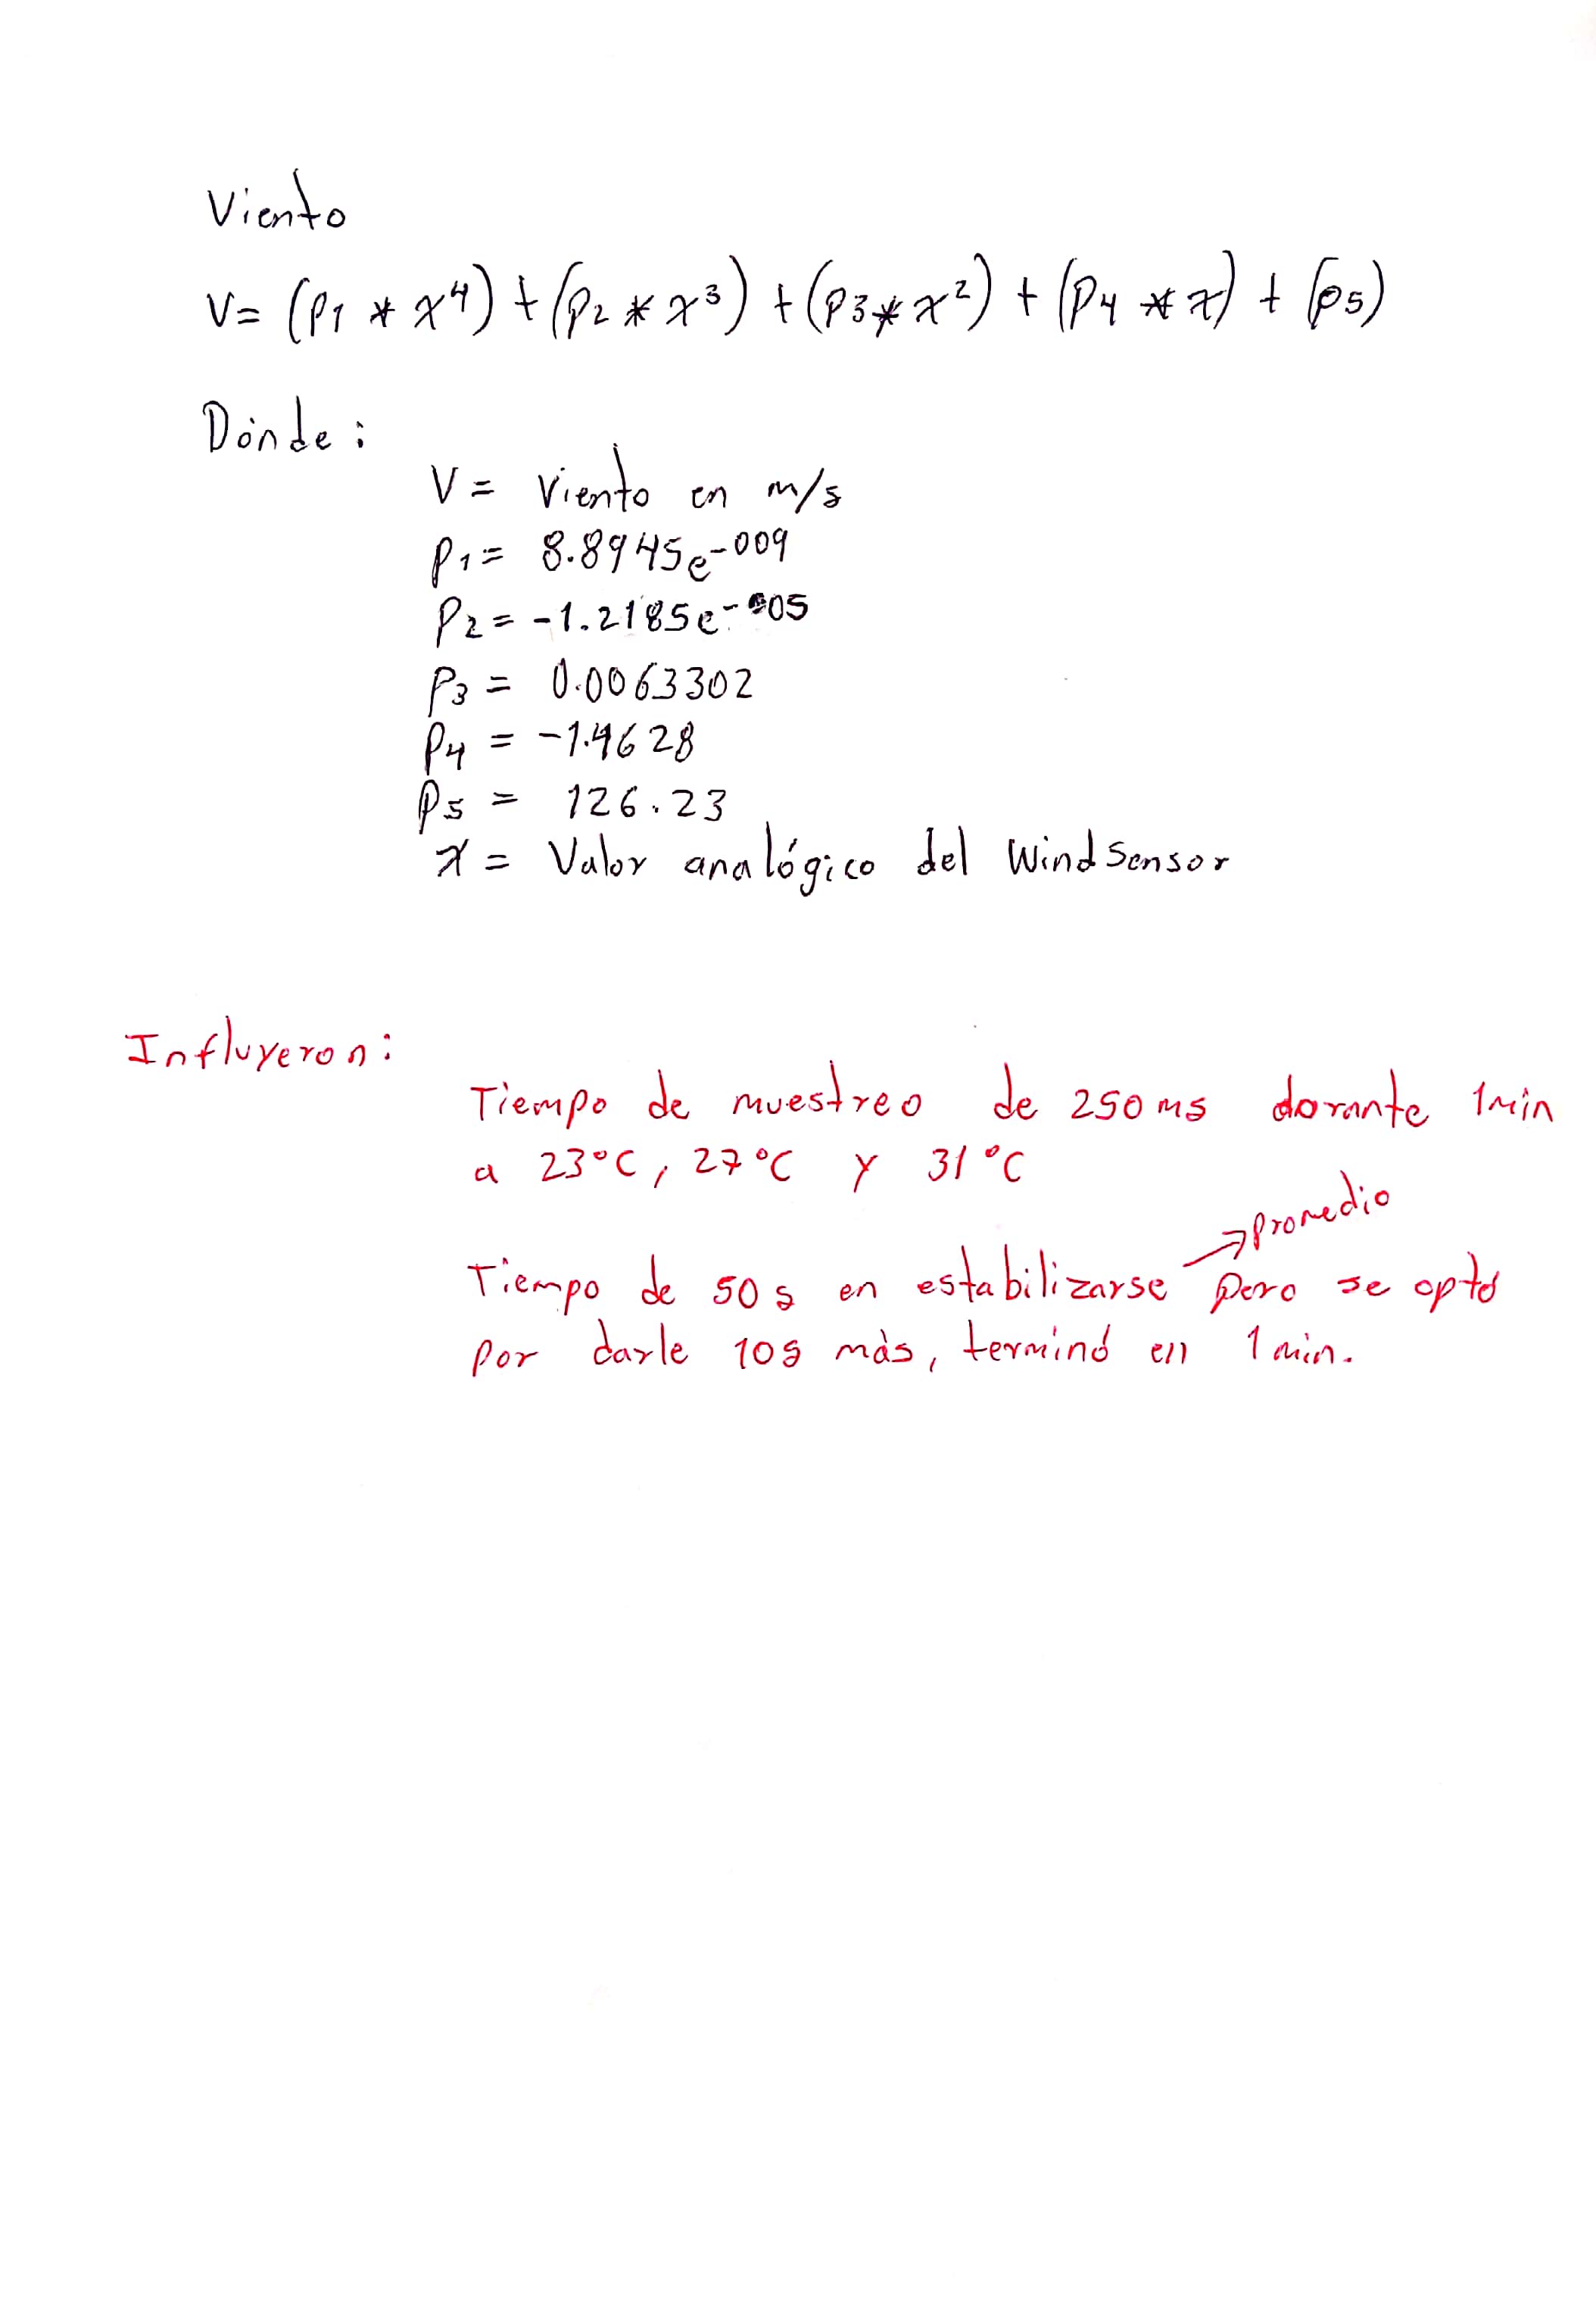 Viento
V= (P1 * x⁴) + (P2 * x³) + (P3 * x²) + (P4 * x) + (P5)
Dónde:
V = Viento en m/s
P1 = 8.8945e-009
P2 = -1.2185e-005
P3 = 0.0063302
P4 = -1.4628
P5 = 126.23
x = Valor analógico del Wind Sensor
Influyeron:
Tiempo de muestreo de 250 ms dorante 1min
a 23°C, 27°C y 31°C
→ Promedio
Tiempo de 50 s en estabilizarse pero se optó
por darle 10s más, terminó en 1 min.